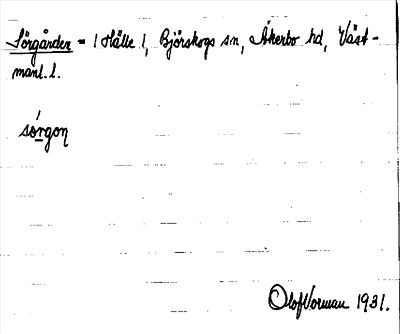 Sörgården = 1 Hälle 1, Björskogs sn, Åkerbo hd, Väst-
manl. l.
sǫ́rgo̜n
Olof Norman 1931.